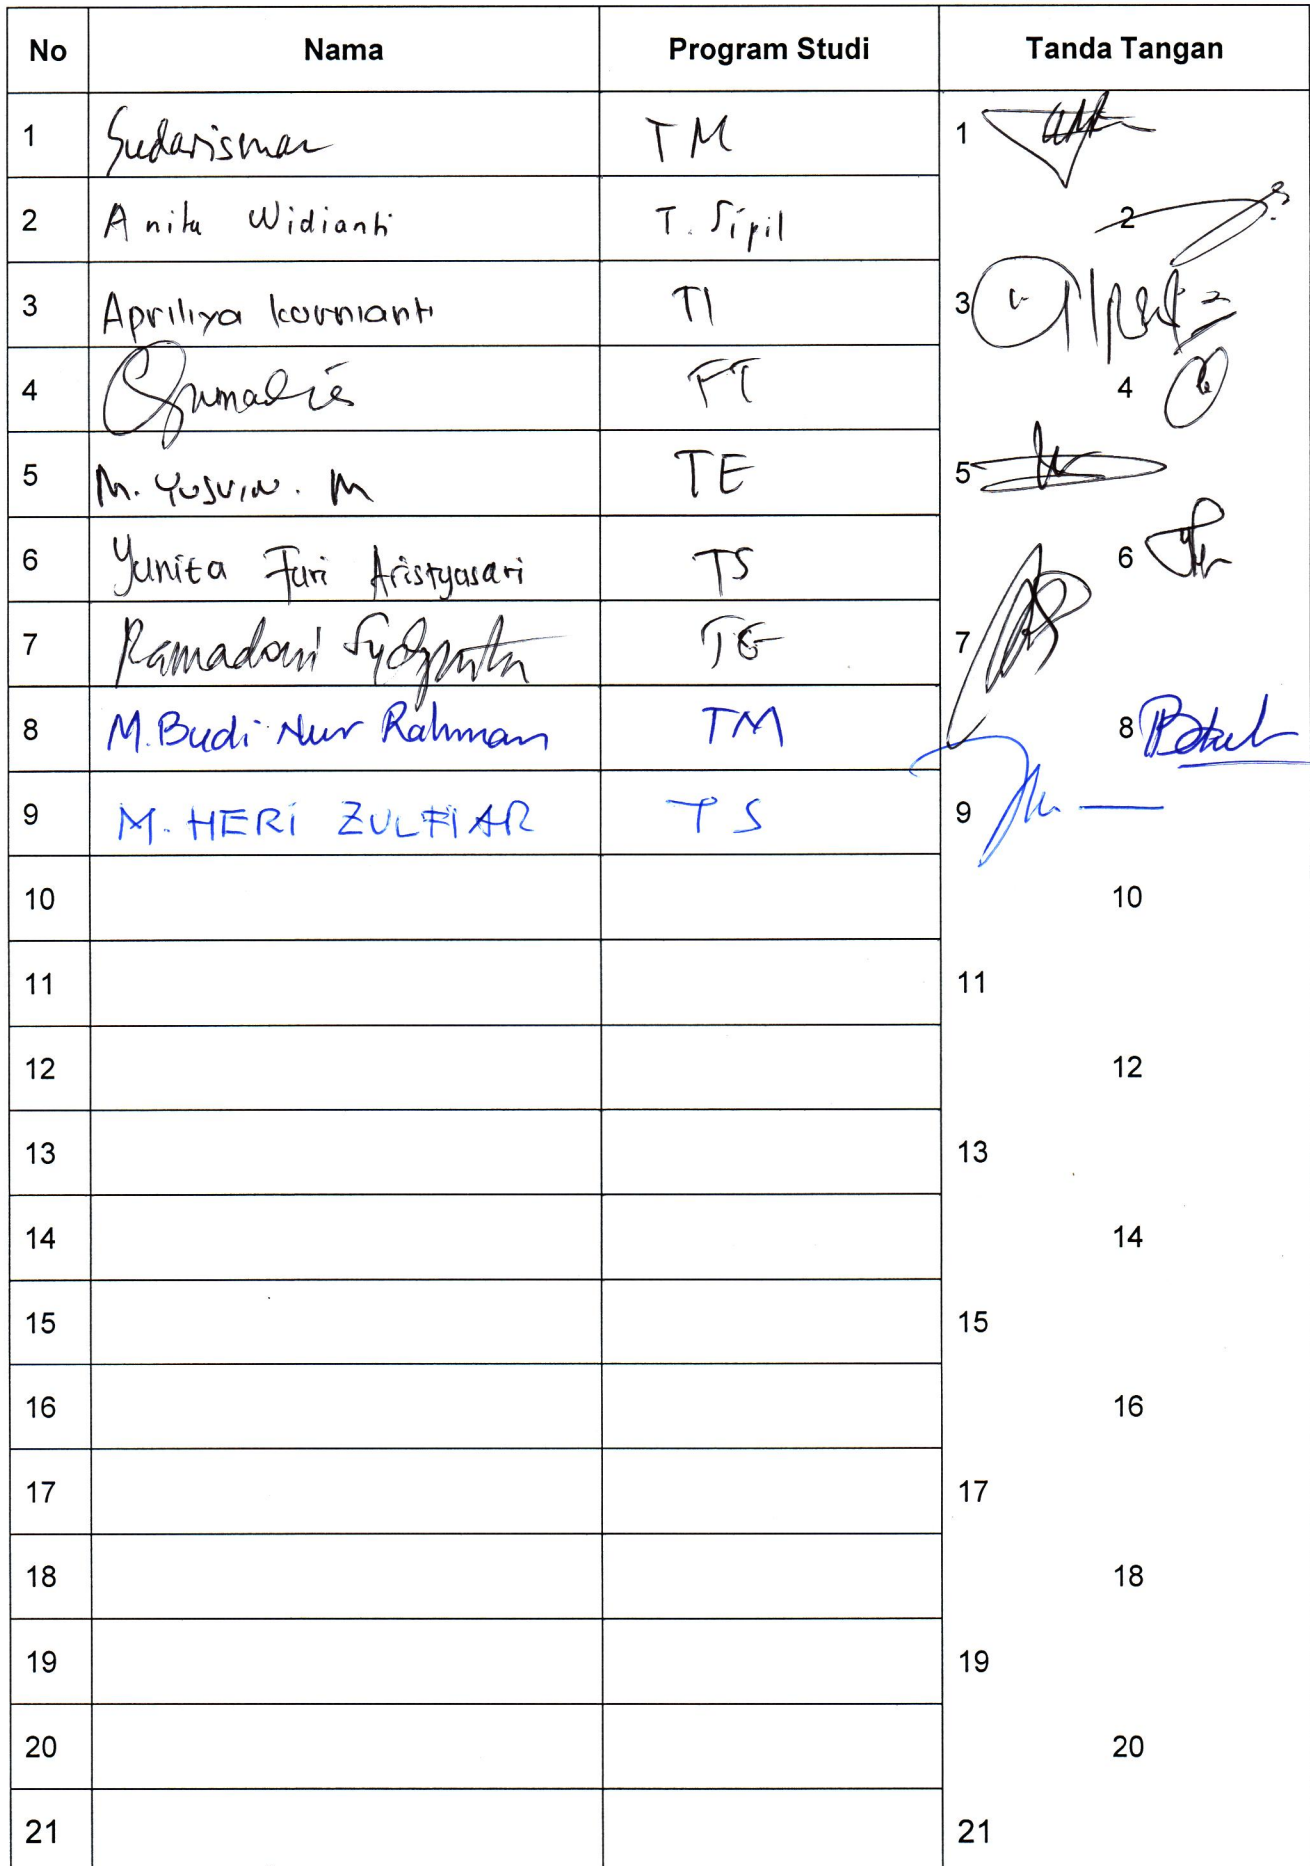 No Nama Program Studi Tanda Tangan
1 Sudarisman TM 1
2 Anita Widianti T. Sipil 2
3 Apriliya kurnianti TI 3
4 FT 4
5 M. Yusvin. M TE 5
6 Yunita Furi Aristyasari TS 6
7 Ramadoni Syahputra TE 7
8 M. Budi Nur Rahman TM 8
9 M. HERI ZULFIAR TS 9
10 10
11 11
12 12
13 13
14 14
15 15
16 16
17 17
18 18
19 19
20 20
21 21